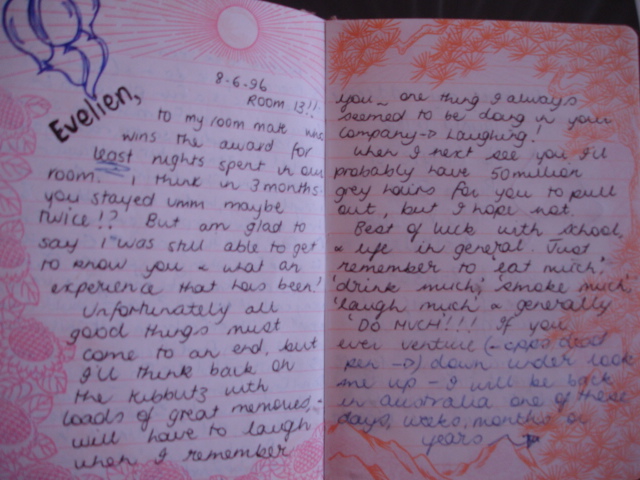 8-6-96
ROOM 13!!
Evelien,
to my room mate who
wins the award for
least nights spent in our
room. I think in 3 months
you stayed umm maybe
twice!? But am glad to
say I was still able to get
to know you & what an
experience that has been!
Unfortunately all
good things must
come to an end, but
I'll think back on
the kibbutz with
loads of great memories, -
will have to laugh
when I remember
you - one thing I always
seemed to be doing in your
company -> Laughing!
When I next see you I'll
probably have 50 million
grey hairs for you to pull
out, but I hope not.
Best of luck with school,
& life in general. Just
remember to 'eat much',
'drink much', 'smoke much',
'laugh much' & generally
'DO MUCH!!! If you
ever venture (- opps dead
pen ->) down under look
me up - I will be back
in australia one of these
days, weeks, months or
years